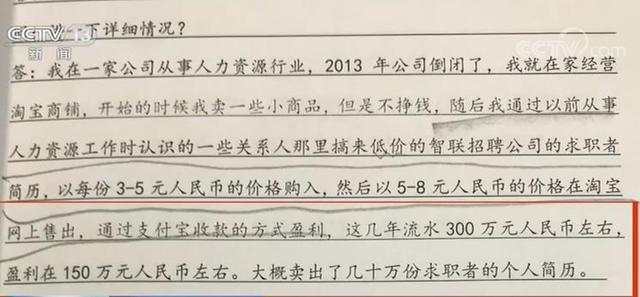 CCTV 13
新闻
CCTV.com
下详细情况?
答:我在一家公司从事人力资源行业,2013 年公司倒闭了,我就在家经营
淘宝商铺,开始的时候我卖一些小商品,但是不挣钱,随后我通过以前从事
人力资源工作时认识的一些关系人那里搞来低价的智联招聘公司的求职者
简历,以每份 3-5 元人民币的价格购入,然后以 5-8 元人民币的价格在淘宝
网上售出,通过支付宝收款的方式盈利,这几年流水 300 万元人民币左右,
盈利在 150 万元人民币左右。大概卖出了几十万份求职者的个人简历。